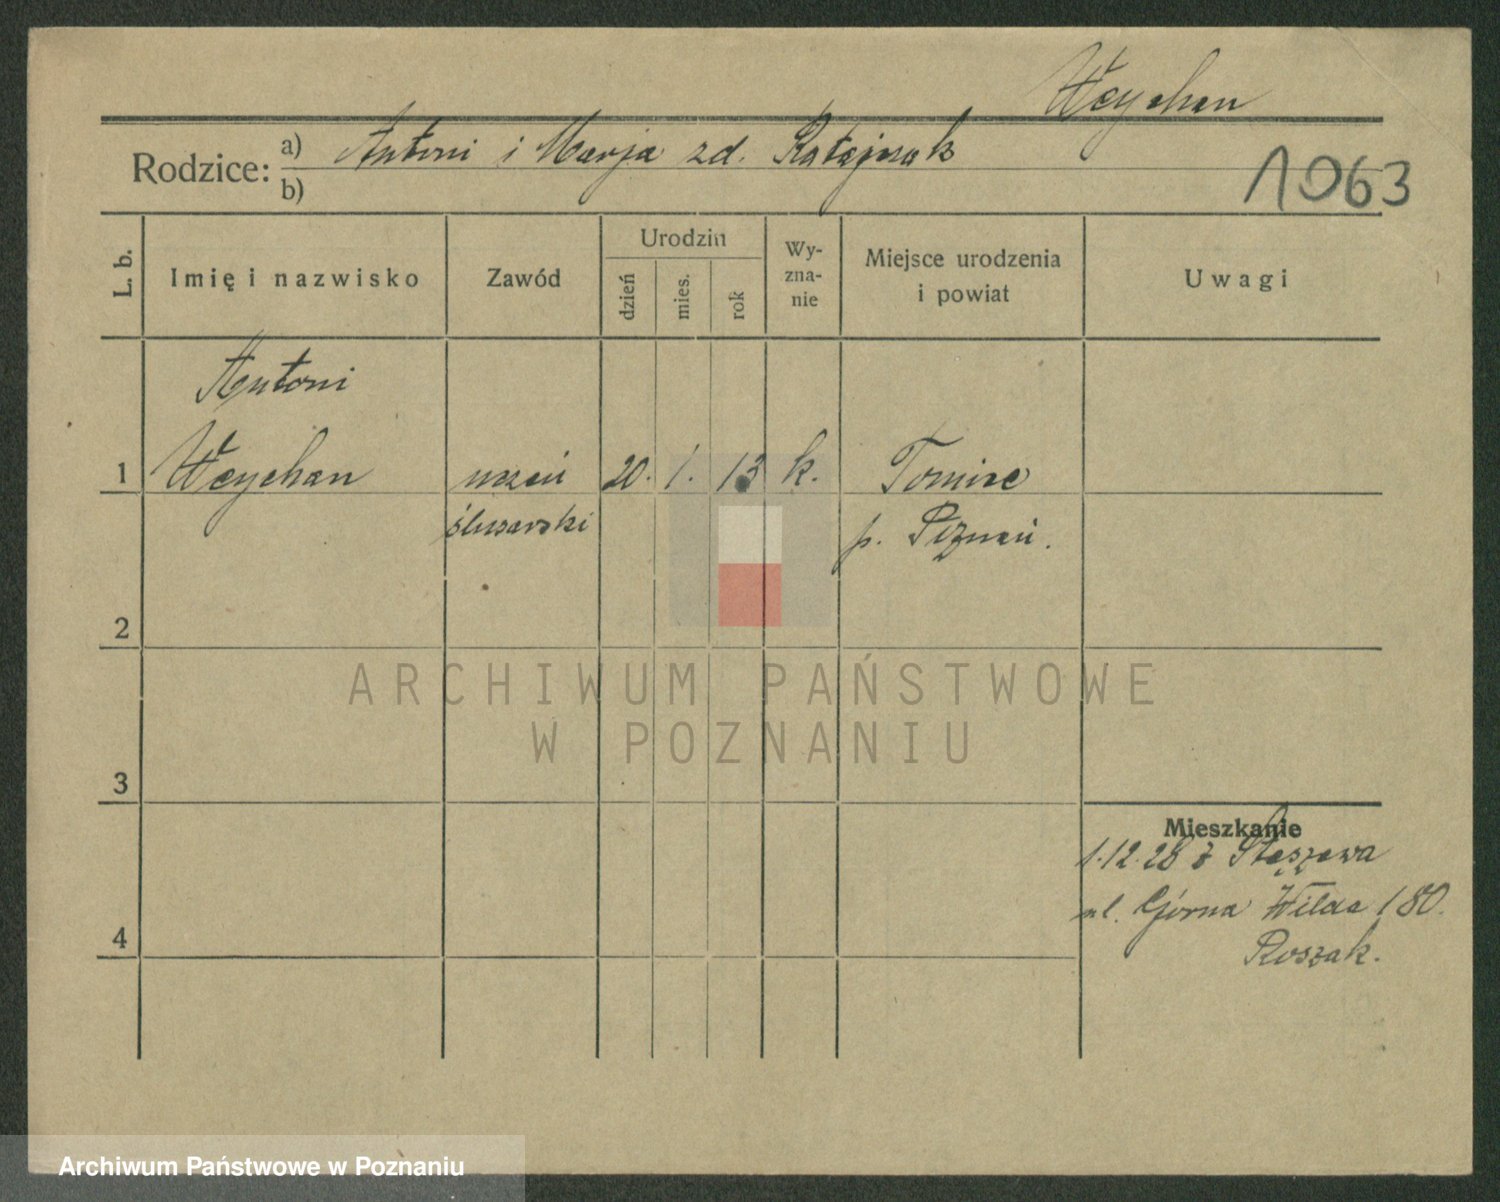 Weychan
Rodzice: a) Antoni i Marja zd. Ratajczak
b)
1063
L. b.
Imię i nazwisko
Zawód
Urodzin
dzień
mies.
rok
Wy-
zna-
nie
Miejsce urodzenia
i powiat
Uwagi
Antoni
1 Weychan uczeń 20. 1. 13 k. Tomice
ślusarski p. Poznań.
2
ARCHIWUM PAŃSTWOWE
W POZNANIU
3
Mieszkanie
1.12.28 z Stęszewa
ul. Górna Wilda 180.
4
Roszak.
Archiwum Państwowe w Poznaniu